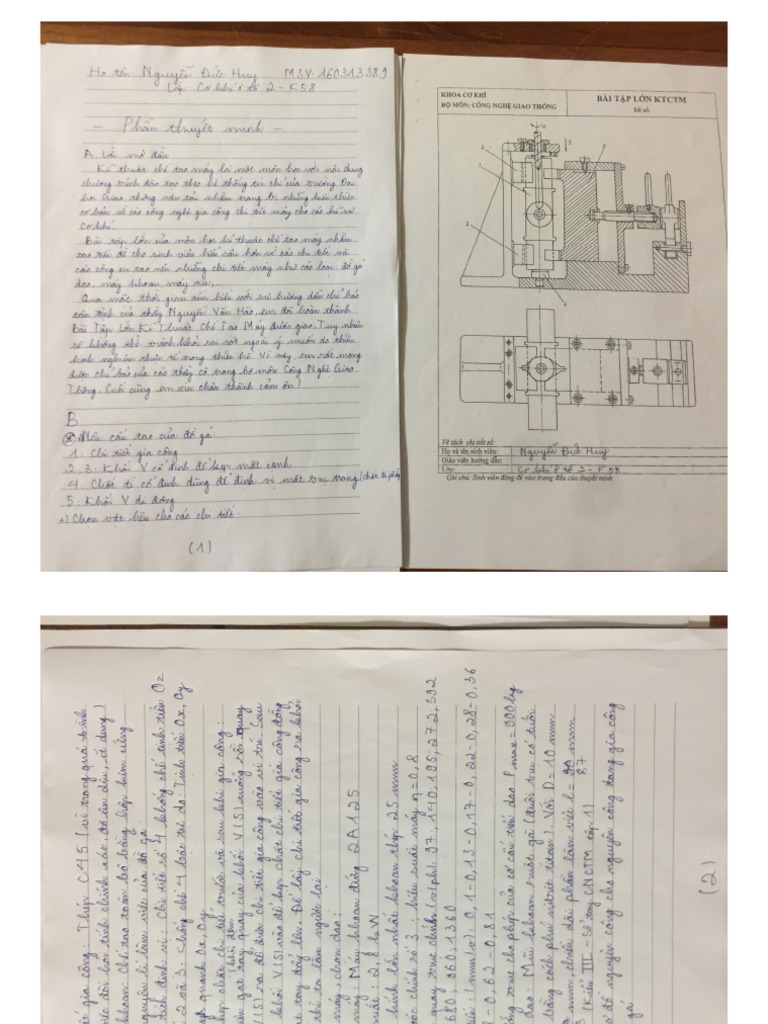 Họ tên: Nguyễn Đức Huy MSV: 160313389
Lớp Cơ khí ô tô 2 - K58
- Phần thuyết minh -
A. Lời mở đầu
Kĩ thuật chế tạo máy là một môn học với nội dung
chương trình đào tạo theo hệ thống tín chỉ của trường Đại
học Giao thông vận tải nhằm trang bị những kiến thức
cơ bản về các công nghệ gia công chi tiết máy cho các kĩ sư
Cơ khí.
Bài tập lớn của môn học kĩ thuật chế tạo máy nhằm
tạo tiền đề cho sinh viên hiểu sâu hơn về các chi tiết và
các công cụ tạo nên những chi tiết máy như các loại: đồ gá
dao, máy khoan, máy tiện,
Qua một thời gian tìm hiểu với sự hướng dẫn chỉ bảo
tận tình của thầy Nguyễn Văn Hào, em đã hoàn thành
Bài Tập Lớn Kĩ Thuật Chế Tạo Máy được giao. Tuy nhiên
sẽ không thể tránh khỏi sai sót ngoài ý muốn do thiếu
kinh nghiệm thực tế trong thiết kế. Vì vậy, em rất mong
được chỉ bảo của các thầy cô trong bộ môn Công Nghệ Giao
Thông. Cuối cùng em xin chân thành cảm ơn!
B.
Nêu cấu tạo của đồ gá:
1: Chi tiết gia công
2,3: Khối V cố định để kẹp mặt cạnh
4: Chốt tì cố định dùng để định vị mặt trụ trong
5: Khối V di động
+) Chọn vật liệu cho các chi tiết:
(1)
KHOA CƠ KHÍ
BỘ MÔN: CÔNG NGHỆ GIAO THÔNG
BÀI TẬP LỚN KTCTM
Đề số:
Vẽ tách chi tiết số:
Họ và tên sinh viên: Nguyễn Đức Huy
Giáo viên hướng dẫn:
Lớp: Cơ khí ô tô 2 - K58
Ghi chú: Sinh viên đóng đề vào trang đầu của thuyết minh
gia công: Thép C45 (vì trong quá trình
đòi hỏi tính chính xác, độ ổn định, ít dung)
khoan: Chế tạo toàn bộ bằng hợp kim cứng
nguyên lí làm việc của đồ gá:
tích định vị: Chi tiết số 4 khống chế tịnh tiến Oz
2 và 3: Khống chế 4 bậc tự do: Tịnh tiến Ox, Oy
quanh Ox, Oy
kẹp chặt chi tiết trước và sau khi gia công:
gạt tay quay của khối V(5) xuống rồi quay
V(5) ra để đưa chi tiết gia công vào vị trí. Sau
khối V(5) vào để kẹp chặt chi tiết gia công đồng
tay đẩy lên. Để lấy chi tiết gia công ra khỏi
thì ta làm ngược lại
máy, chọn dao:
máy: Máy khoan đứng 2A125
suất: 2,8 kW
kính lớn nhất khoan thép 25 mm
côn số 3; hiệu suất máy η=0,8
quay trục chính (v/ph): 97; 140; 195; 272; 392
680; 960; 1360
(mm/v): 0,1-0,13-0,17-0,22-0,28-0,36
-0,62-0,81
cho phép của cơ cấu tiến dao Pmax = 900kg
dao: Mũi khoan ruột gà (đuôi trụ có tiết
bằng cách phủ nitrit titan). Với D = 10 mm
mm, chiều dài phần làm việc l = 87 mm
(Kiểu III - Sổ tay CNCTM tập 1)
đồ nguyên công cho nguyên công đang gia công
gá
(2)